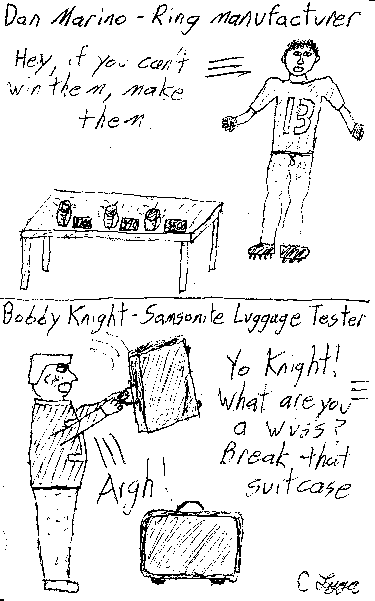 Dan Marino - Ring manufacturer
Hey, if you can't
win them, make
them.
13
Bobby Knight - Samsonite Luggage Tester
Yo Knight!
What are you
a wuss?
Break that
suitcase
Argh!
C